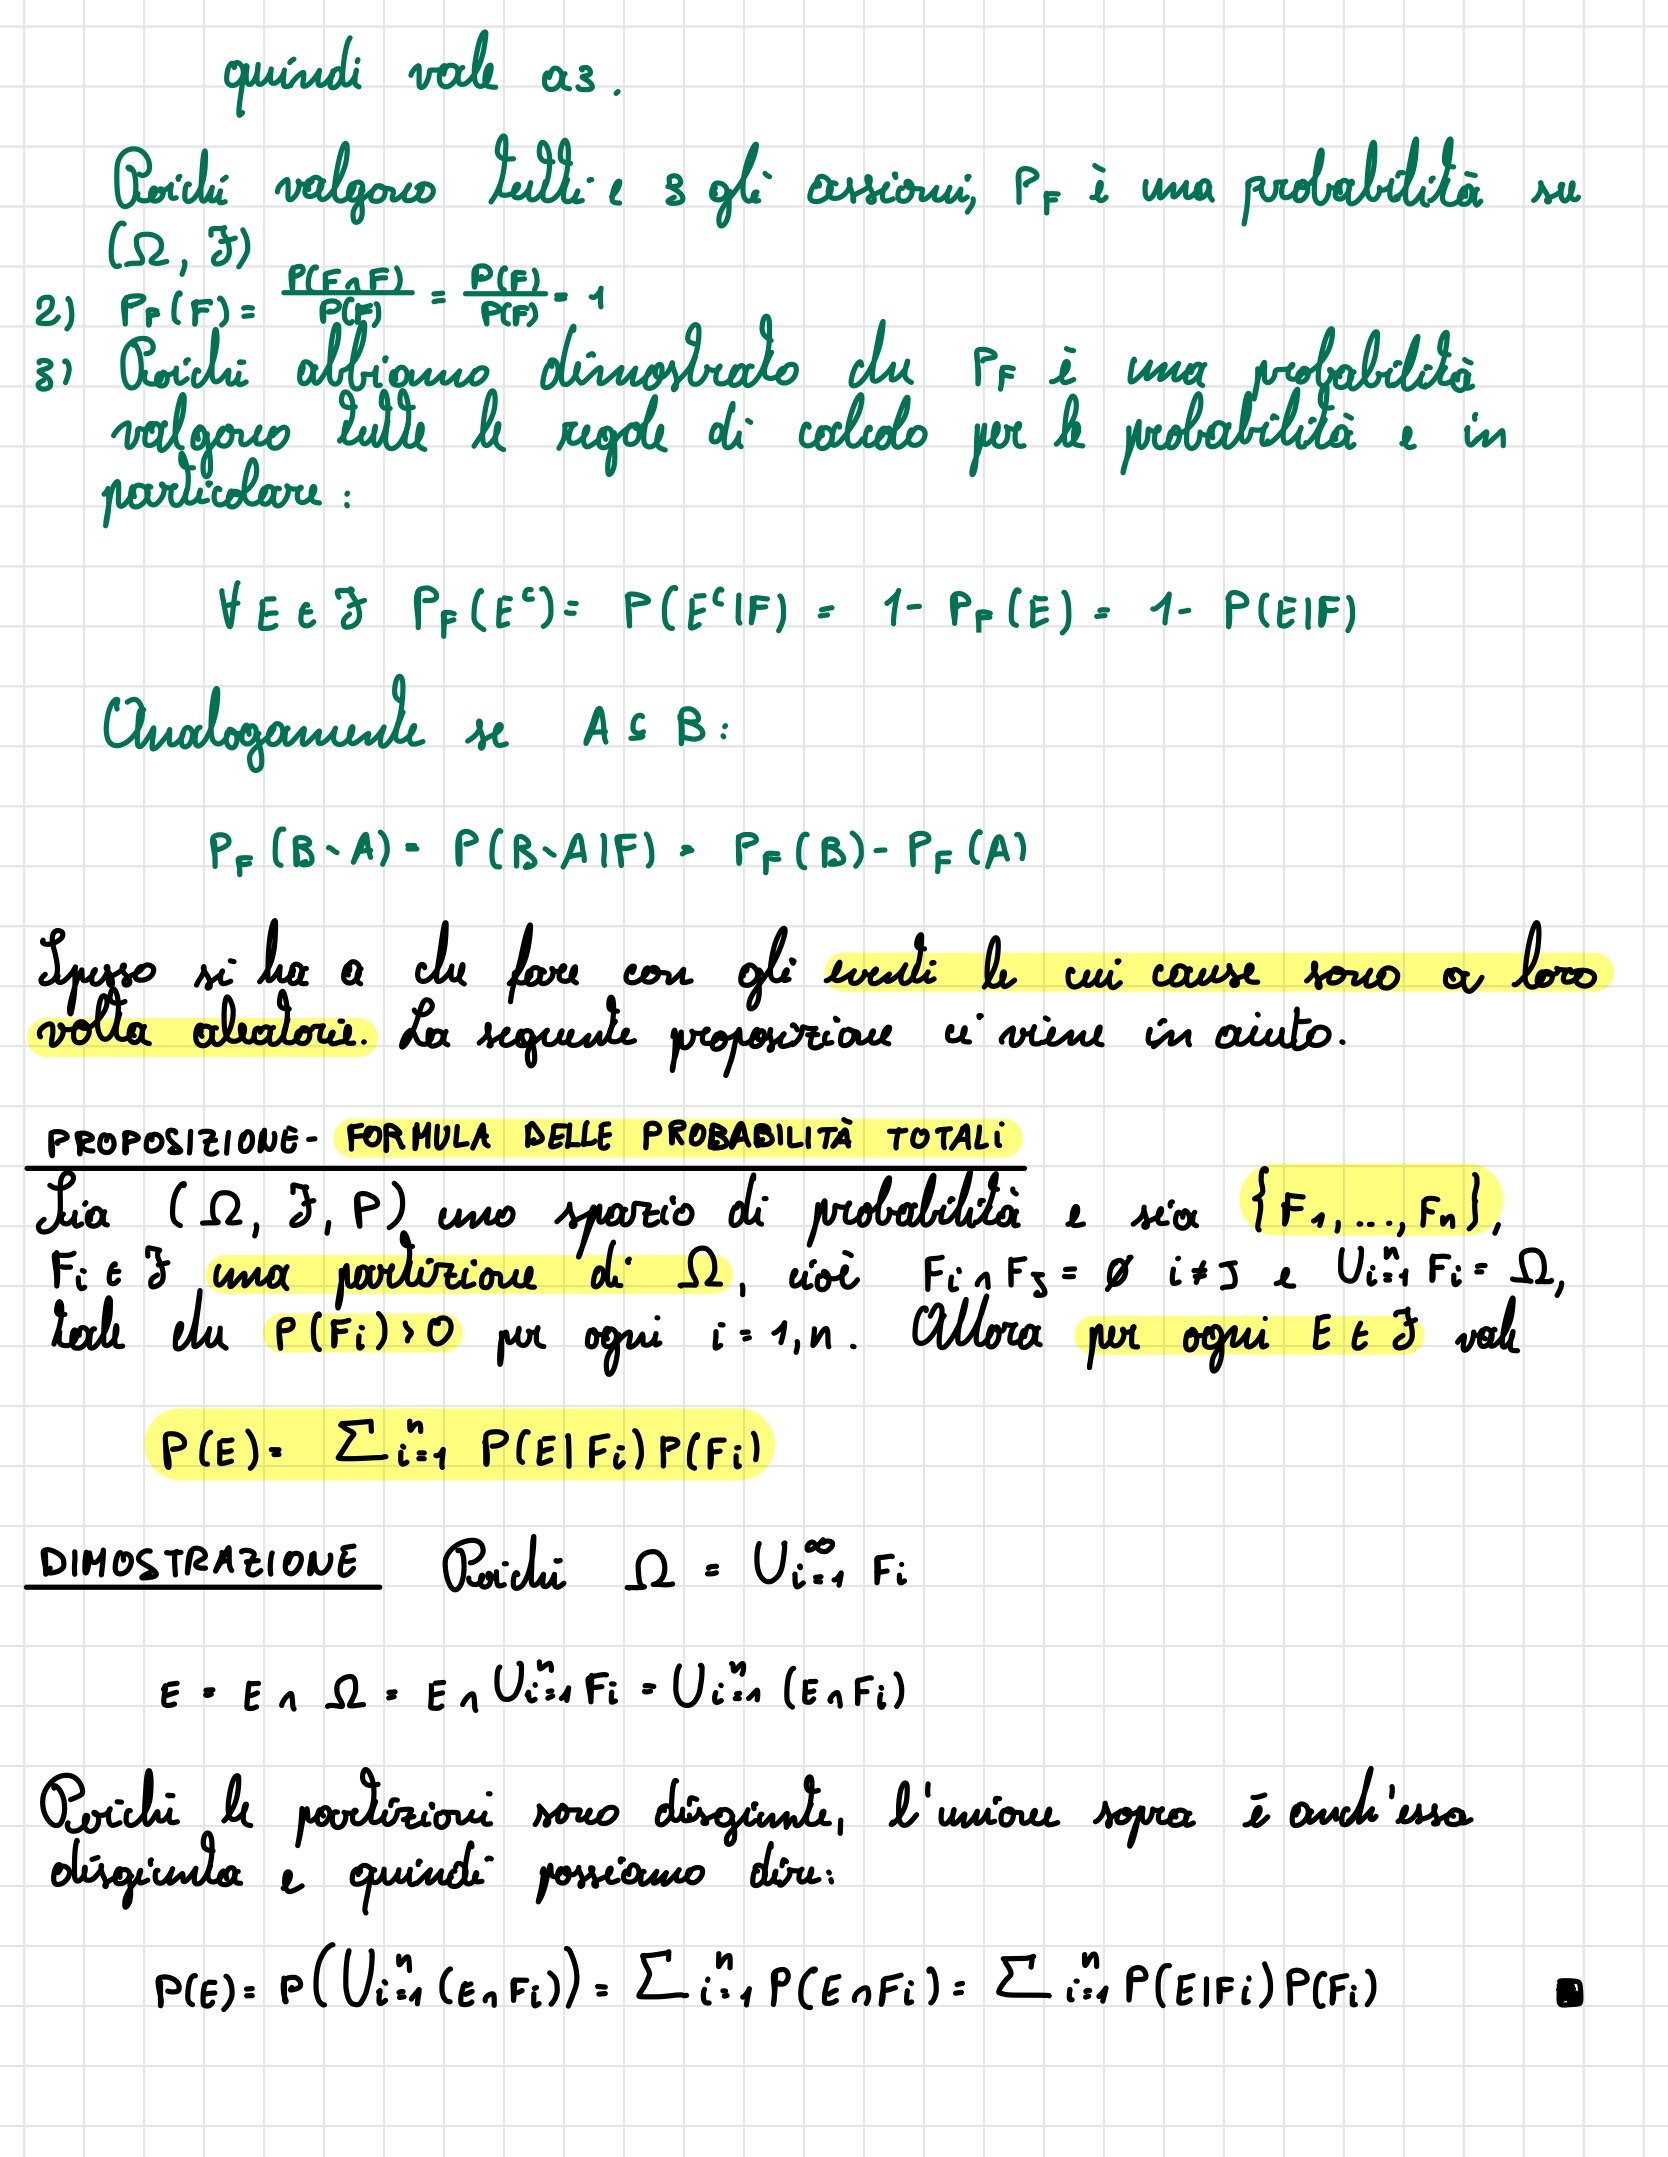 quindi vale a3.
Poiché valgono tutti e 3 gli assiomi, P_F è una probabilità su
(Ω, ℱ)
2) P_F(F) = P(F∩F)/P(F) = P(F)/P(F) = 1
3) Poiché abbiamo dimostrato che P_F è una probabilità
valgono tutte le regole di calcolo per le probabilità e in
particolare:
∀ E ∈ ℱ P_F(E^c) = P(E^c|F) = 1 - P_F(E) = 1 - P(E|F)
Analogamente se A ⊆ B:
P_F(B∖A) = P(B∖A|F) = P_F(B) - P_F(A)
Spesso si ha a che fare con gli eventi le cui cause sono a loro
volta aleatorie. La seguente proposizione ci viene in aiuto.
PROPOSIZIONE - FORMULA DELLE PROBABILITÀ TOTALI
Sia (Ω, ℱ, P) uno spazio di probabilità e sia {F₁, ..., Fₙ},
Fᵢ ∈ ℱ una partizione di Ω, cioè Fᵢ ∩ F_J = ∅ i ≠ J e ⋃ᵢ₌₁ⁿ Fᵢ = Ω,
tale che P(Fᵢ) > 0 per ogni i = 1, n. Allora per ogni E ∈ ℱ vale
P(E) = ∑ᵢ₌₁ⁿ P(E|Fᵢ) P(Fᵢ)
DIMOSTRAZIONE Poiché Ω = ⋃ᵢ₌₁^∞ Fᵢ
E = E ∩ Ω = E ∩ ⋃ᵢ₌₁ⁿ Fᵢ = ⋃ᵢ₌₁ⁿ (E ∩ Fᵢ)
Poiché le partizioni sono disgiunte, l'unione sopra è anch'essa
disgiunta e quindi possiamo dire:
P(E) = P(⋃ᵢ₌₁ⁿ (E ∩ Fᵢ)) = ∑ᵢ₌₁ⁿ P(E ∩ Fᵢ) = ∑ᵢ₌₁ⁿ P(E|Fᵢ) P(Fᵢ) ■